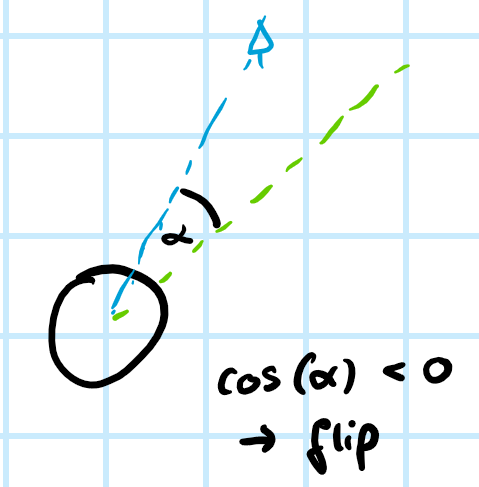 α
cos(α) < 0
→ flip